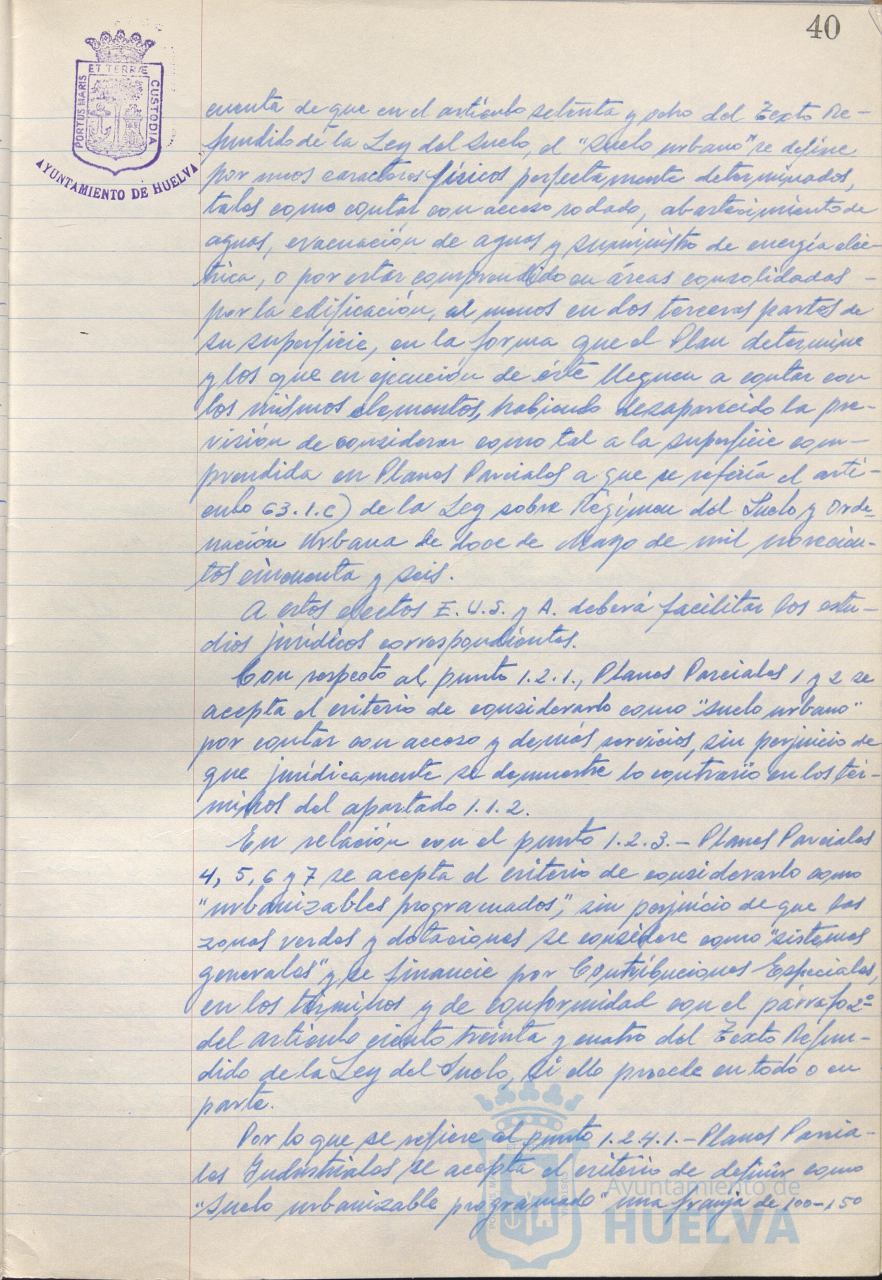 40
ET TERRÆ
PORTUS MARIS
CUSTODIA
AYUNTAMIENTO DE HUELVA
cuenta de que en el artículo setenta y ocho del Texto Re-
fundido de la Ley del Suelo, el "suelo urbano" se define
por unos caracteres físicos perfectamente determinados,
tales como contar con acceso rodado, abastecimiento de
aguas, evacuación de aguas y suministro de energía eléc-
trica, o por estar comprendido en áreas consolidadas -
por la edificación, al menos en dos terceras partes de
su superficie, en la forma que el Plan determine
y los que en ejecución de éste lleguen a contar con
los mismos elementos, habiendo desaparecido la pre-
visión de considerar como tal a la superficie com-
prendida en Planes Parciales a que se refería el artí-
culo 63.1.c) de la Ley sobre Régimen del Suelo y Orde-
nación Urbana de doce de Mayo de mil novecien-
tos cincuenta y seis.
A estos efectos E.U.S. y A. deberá facilitar los estu-
dios jurídicos correspondientes.
Con respecto al punto 1.2.1., Planes Parciales 1 y 2 se
acepta el criterio de considerarlo como "suelo urbano"
por contar con acceso y demás servicios, sin perjuicio de
que jurídicamente se demuestre lo contrario en los tér-
minos del apartado 1.1.2.
En relación con el punto 1.2.3.- Planes Parciales
4, 5, 6 y 7 se acepta el criterio de considerarlo como
"urbanizables programados", sin perjuicio de que las
zonas verdes y dotaciones se considere como "sistemas
generales" y se financie por Contribuciones Especiales,
en los términos y de conformidad con el párrafo 2º
del artículo ciento treinta y cuatro del Texto Refun-
dido de la Ley del Suelo, si ello procede en todo o en
parte.
Por lo que se refiere al punto 1.2.4.1.- Planes Parcia-
les Industriales se acepta el criterio de definir como
"suelo urbanizable programado" una franja de 100-150
Ayuntamiento de
HUELVA